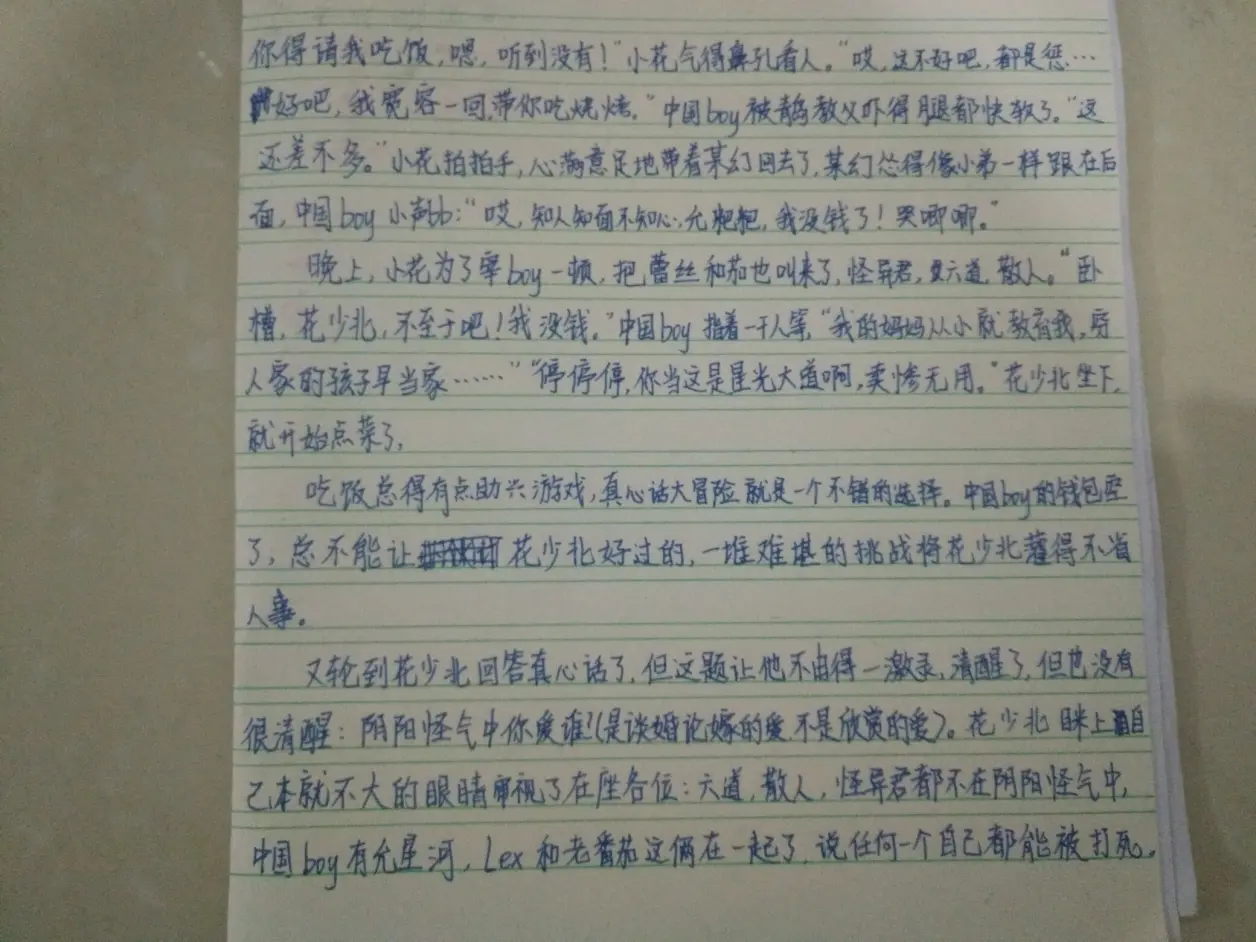 你得请我吃饭,嗯,听到没有!"小花气得鼻孔看人。"哎,这不好吧,都是您…
好吧,我宽容一回,带你吃烧烤。"中国boy被鹊教父吓得腿都快软了。"这
还差不多。"小花拍拍手,心满意足地带着某幻回去了,某幻怂得像小弟一样跟在后
面,中国boy小声bb:"哎,知人知面不知心,允肥肥,我没钱了!哭唧唧。"
晚上,小花为了宰boy一顿,把蕾丝和茄也叫来了,怪异君,六道,散人。"卧
槽,花少北,不至于吧!我没钱。"中国boy指着一干人等,"我的妈妈从小就教育我,穷
人家的孩子早当家……""停停停,你当这是星光大道啊,卖惨无用。"花少北坐下,
就开始点菜了,
吃饭总得有点助兴游戏,真心话大冒险就是一个不错的选择。中国boy的钱包空
了,总不能让花少北好过的,一堆难堪的挑战将花少北灌得不省
人事。
又轮到花少北回答真心话了,但这题让他不由得一激灵,清醒了,但也没有
很清醒:阴阳怪气中你爱谁?(是谈婚论嫁的爱不是欣赏的爱)。花少北眯上自
己本就不大的眼睛审视了在座各位:六道,散人,怪异君都不在阴阳怪气中,
中国boy有允星河,Lex和老番茄这俩在一起了,说任何一个自己都能被打死。